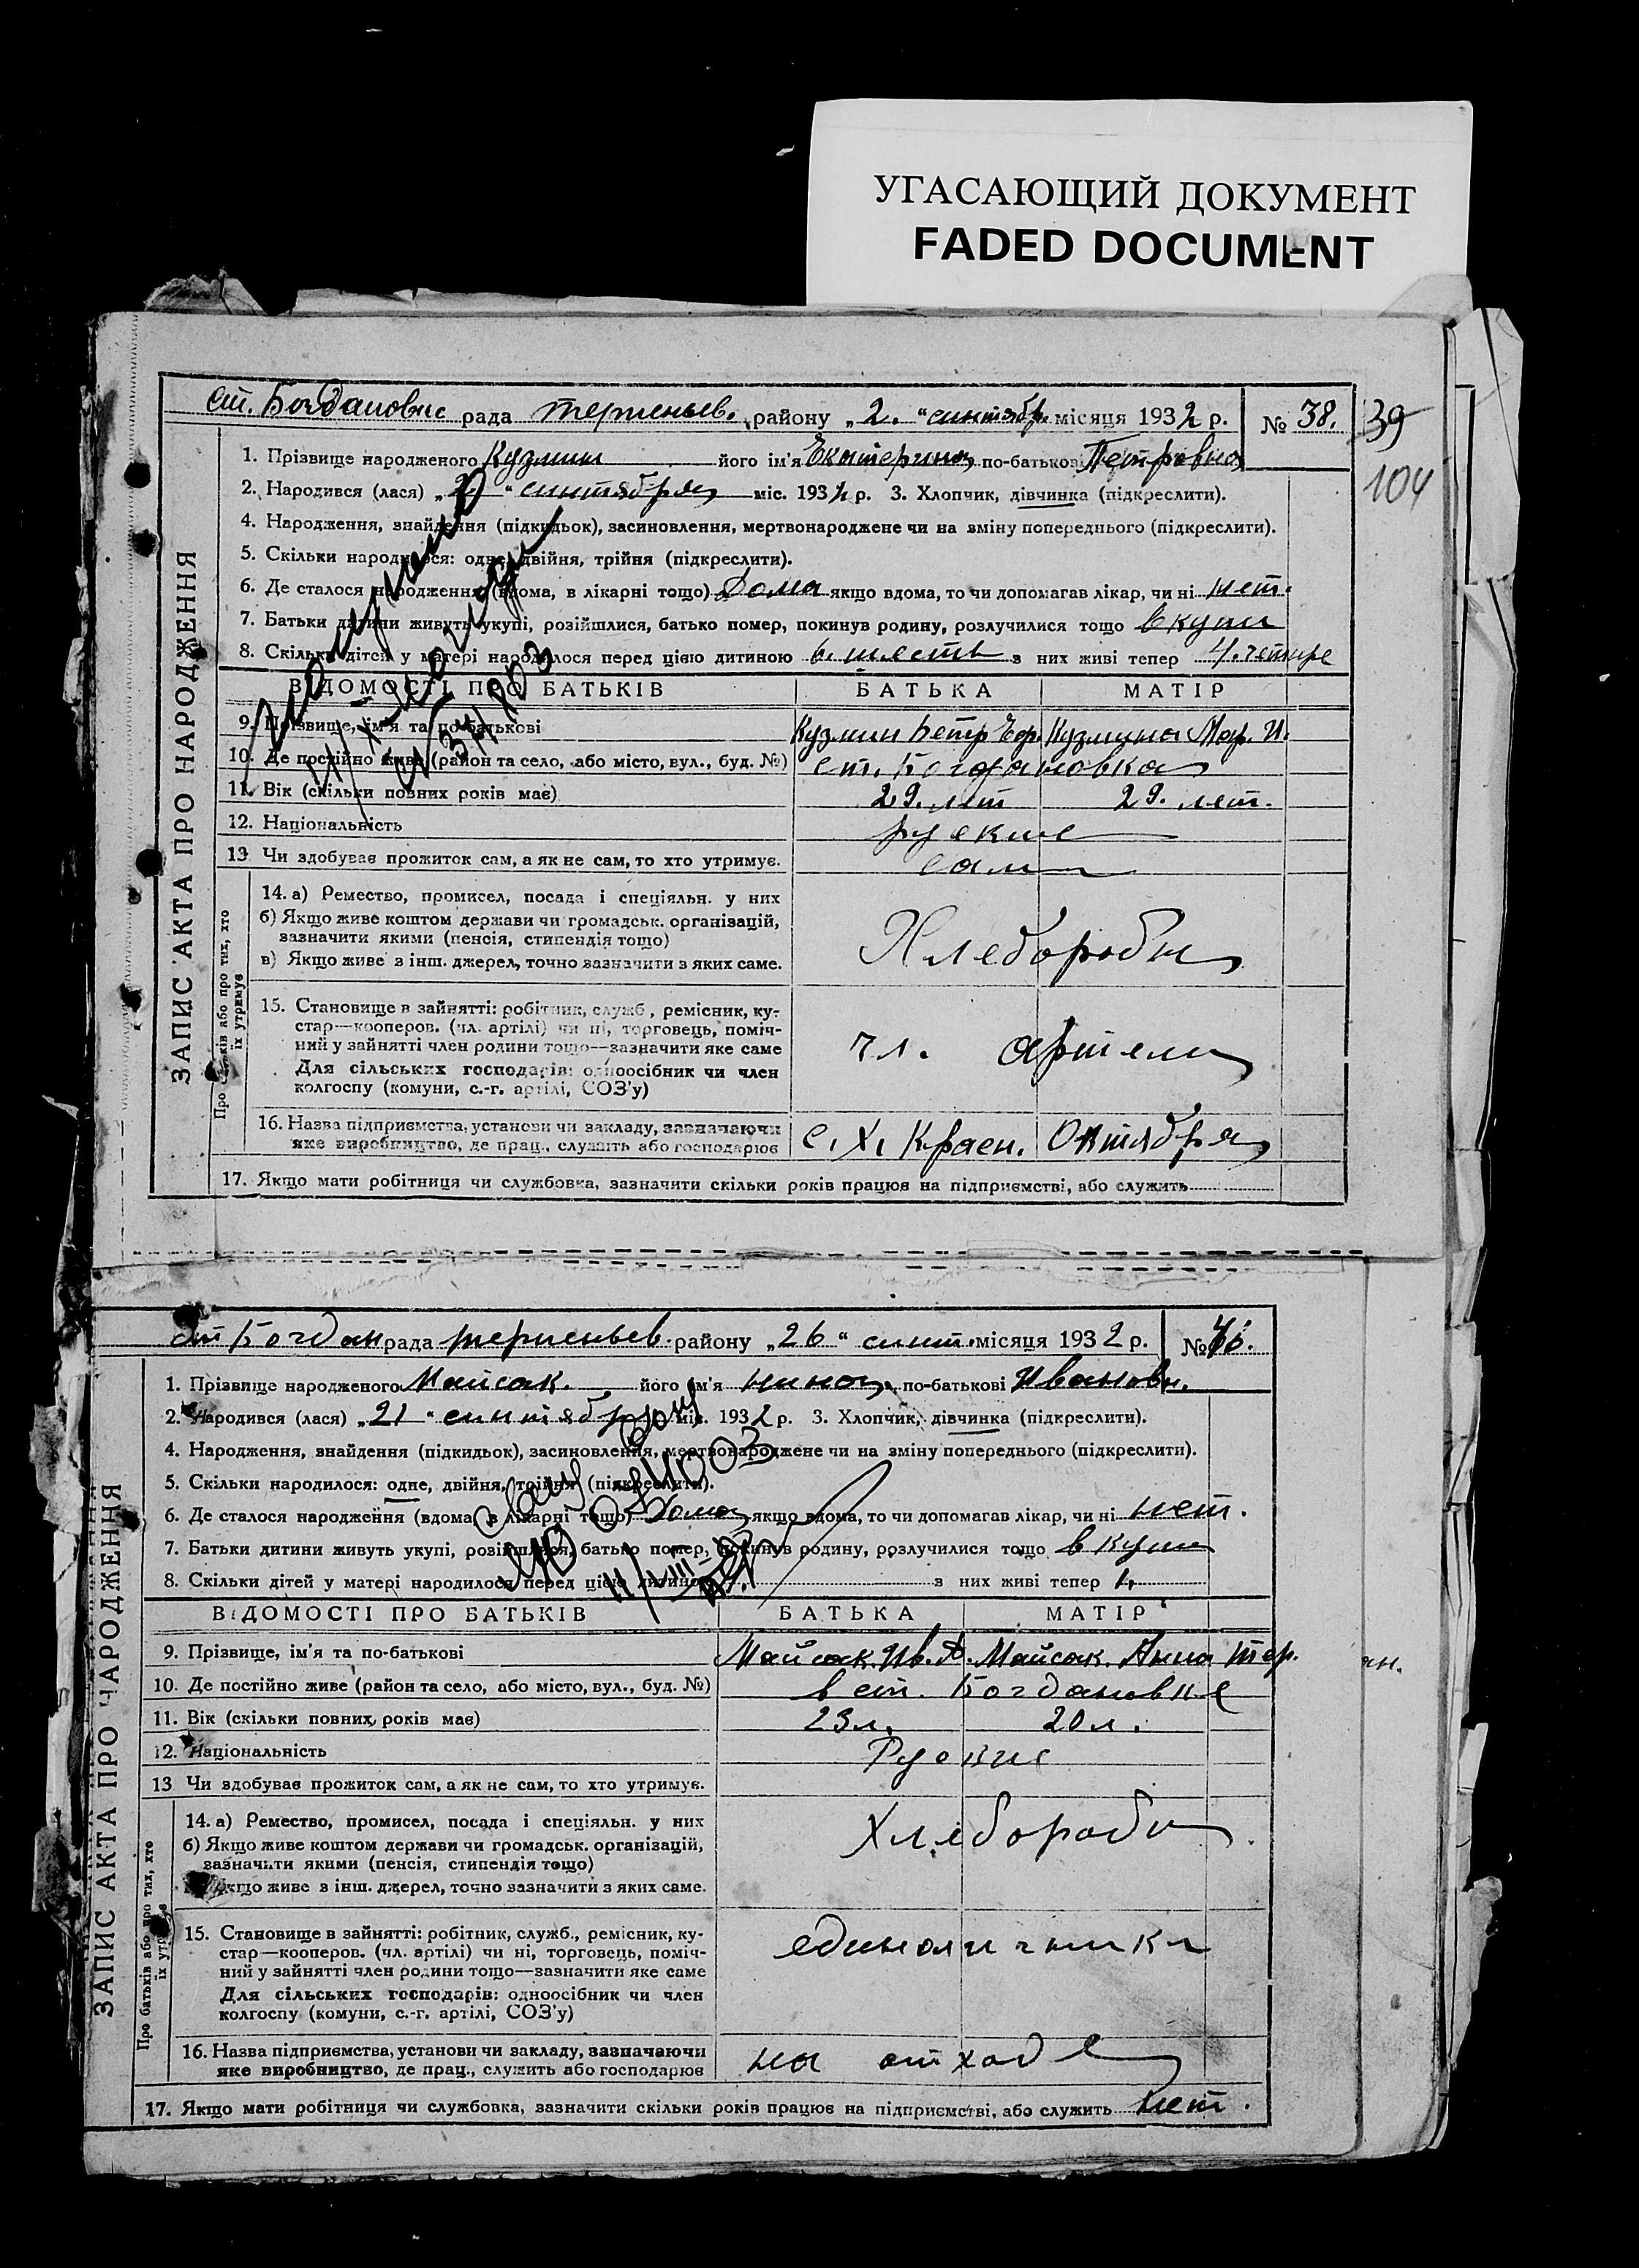 УГАСАЮЩИЙ ДОКУМЕНТ
FADED DOCUMENT
ст. Богдановке рада терпеньев. району „2.“ синтябр. місяця 1932 р. № 38. 39
104
ЗАПИС АКТА ПРО НАРОДЖЕННЯ
1. Прізвище народженого Кузмин його ім'я Екатерина по-батькові Петровна
2. Народився (лася) „ “ синтября міс. 1932 р. 3. Хлопчик, дівчинка (підкреслити).
4. Народження, знайдення (підкидьок), засиновлення, мертвонароджене чи на зміну попереднього (підкреслити).
5. Скільки народилося: одне, двійня, трійня (підкреслити).
6. Де сталося народження (вдома, в лікарні тощо) Дома якщо вдома, то чи допомагав лікар, чи ні нет.
7. Батьки дитини живуть укупі, розійшлися, батько помер, покинув родину, розлучилися тощо вкупи
8. Скільки дітей у матері народилося перед цією дитиною 6. шесть з них живі тепер 4. четире
ВІДОМОСТІ ПРО БАТЬКІВ БАТЬКА МАТІР
9. Прізвище, ім'я та по-батькові Кузмин Петр Егр. Кузмина Мар. И.
10. Де постійно живе (район та село, або місто, вул., буд. №) ст. Богдановка
11. Вік (скільки повних років має) 29. лет 29. лет.
12. Національність руские
13 Чи здобуває прожиток сам, а як не сам, то хто утримує. сами
Про батьків або про тих, хто їх утримує
14. а) Ремество, промисел, посада і спеціяльн. у них
б) Якщо живе коштом держави чи громадськ. організацій,
зазначити якими (пенсія, стипендія тощо)
в) Якщо живе з інш. джерел, точно зазначити з яких саме.
Хлеборобы
15. Становище в зайнятті: робітник, служб., ремісник, ку-
стар—кооперов. (чл. артілі) чи ні, торговець, поміч-
ний у зайнятті член родини тощо—зазначити яке саме
чл. артели
Для сільських господарів: одноосібник чи член
колгоспу (комуни, с.-г. артілі, СОЗ'у)
16. Назва підприємства, установи чи закладу, зазначаючи
яке виробництво, де прац., служить або господарює
с. х. Красн. Октября
17. Якщо мати робітниця чи службовка, зазначити скільки років працює на підприємстві, або служить
ст Богдан рада терпеньев. району „26“ синт. місяця 1932 р. №
ЗАПИС АКТА ПРО НАРОДЖЕННЯ
1. Прізвище народженого Майсак. його ім'я нина по-батькові Ивановн.
2. Народився (лася) „21“ синтября міс. 1932 р. 3. Хлопчик, дівчинка (підкреслити).
4. Народження, знайдення (підкидьок), засиновлення, мертвонароджене чи на зміну попереднього (підкреслити).
5. Скільки народилося: одне, двійня, трійня (підкреслити).
6. Де сталося народження (вдома, в лікарні тощо) Дома якщо вдома, то чи допомагав лікар, чи ні нет.
7. Батьки дитини живуть укупі, розійшлися, батько помер, покинув родину, розлучилися тощо в купи
8. Скільки дітей у матері народилося перед цією дитиною з них живі тепер 1.
ВІДОМОСТІ ПРО БАТЬКІВ БАТЬКА МАТІР
9. Прізвище, ім'я та по-батькові Майсак. Ив. А. Майсак. Анна Тер.
10. Де постійно живе (район та село, або місто, вул., буд. №) в ст. Богдановке
11. Вік (скільки повних років має) 23 л. 20 л.
12. Національність Руские
13 Чи здобуває прожиток сам, а як не сам, то хто утримує.
Про батьків або про тих, хто їх утримує
14. а) Ремество, промисел, посада і спеціяльн. у них
б) Якщо живе коштом держави чи громадськ. організацій,
зазначити якими (пенсія, стипендія тощо)
якщо живе з інш. джерел, точно зазначити з яких саме.
Хлебороби
15. Становище в зайнятті: робітник, служб., ремісник, ку-
стар—кооперов. (чл. артілі) чи ні, торговець, поміч-
ний у зайнятті член родини тощо—зазначити яке саме
единоличники
Для сільських господарів: одноосібник чи член
колгоспу (комуни, с.-г. артілі, СОЗ'у)
16. Назва підприємства, установи чи закладу, зазначаючи
яке виробництво, де прац., служить або господарює
на отходе
17. Якщо мати робітниця чи службовка, зазначити скільки років працює на підприємстві, або служить нет.